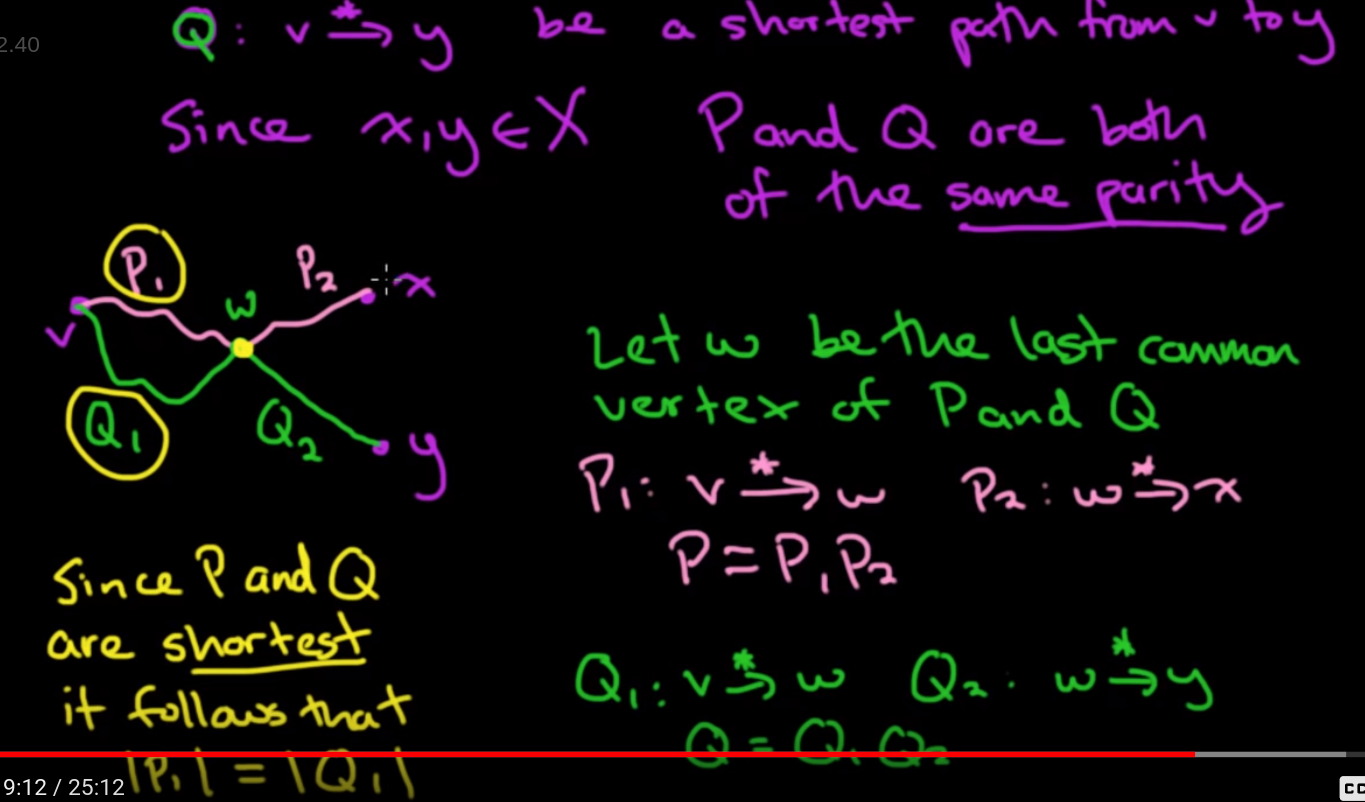 2.40
Q: v →* y be a shortest path from v to y
Since x,y ∈ X P and Q are both
of the same parity
P₁ P₂ x
w
v
Q₁ Q₂ y
Let w be the last common
vertex of P and Q
P₁: v →* w P₂: w →* x
P = P₁P₂
Since P and Q
are shortest
it follows that
|P₁| = |Q₁|
Q₁: v →* w Q₂: w →* y
Q = Q₁Q₂
9:12 / 25:12
CC